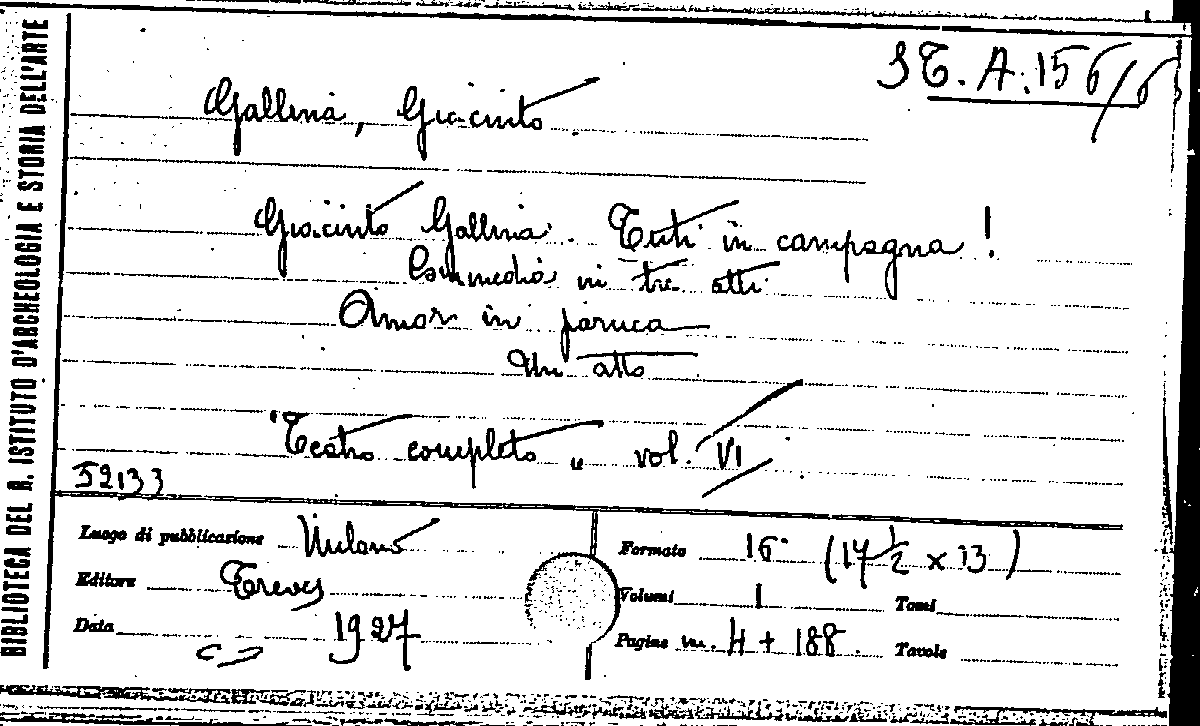 BIBLIOTECA DEL R. ISTITUTO D'ARCHEOLOGIA E STORIA DELL'ARTE
ST. A. 156/6
Gallina, Giacinto
Giacinto Gallina. Tuti in campagna!
Commedia in tre atti
Amor in paruca
Un atto
"Teatro completo" vol. VI
52133
Luogo di pubblicazione Milano
Editore Treves
Data 1927
Formato 16° (17 1/2 x 13)
Volumi 1 Tomi
Pagine nn. 4 + 188. Tavole